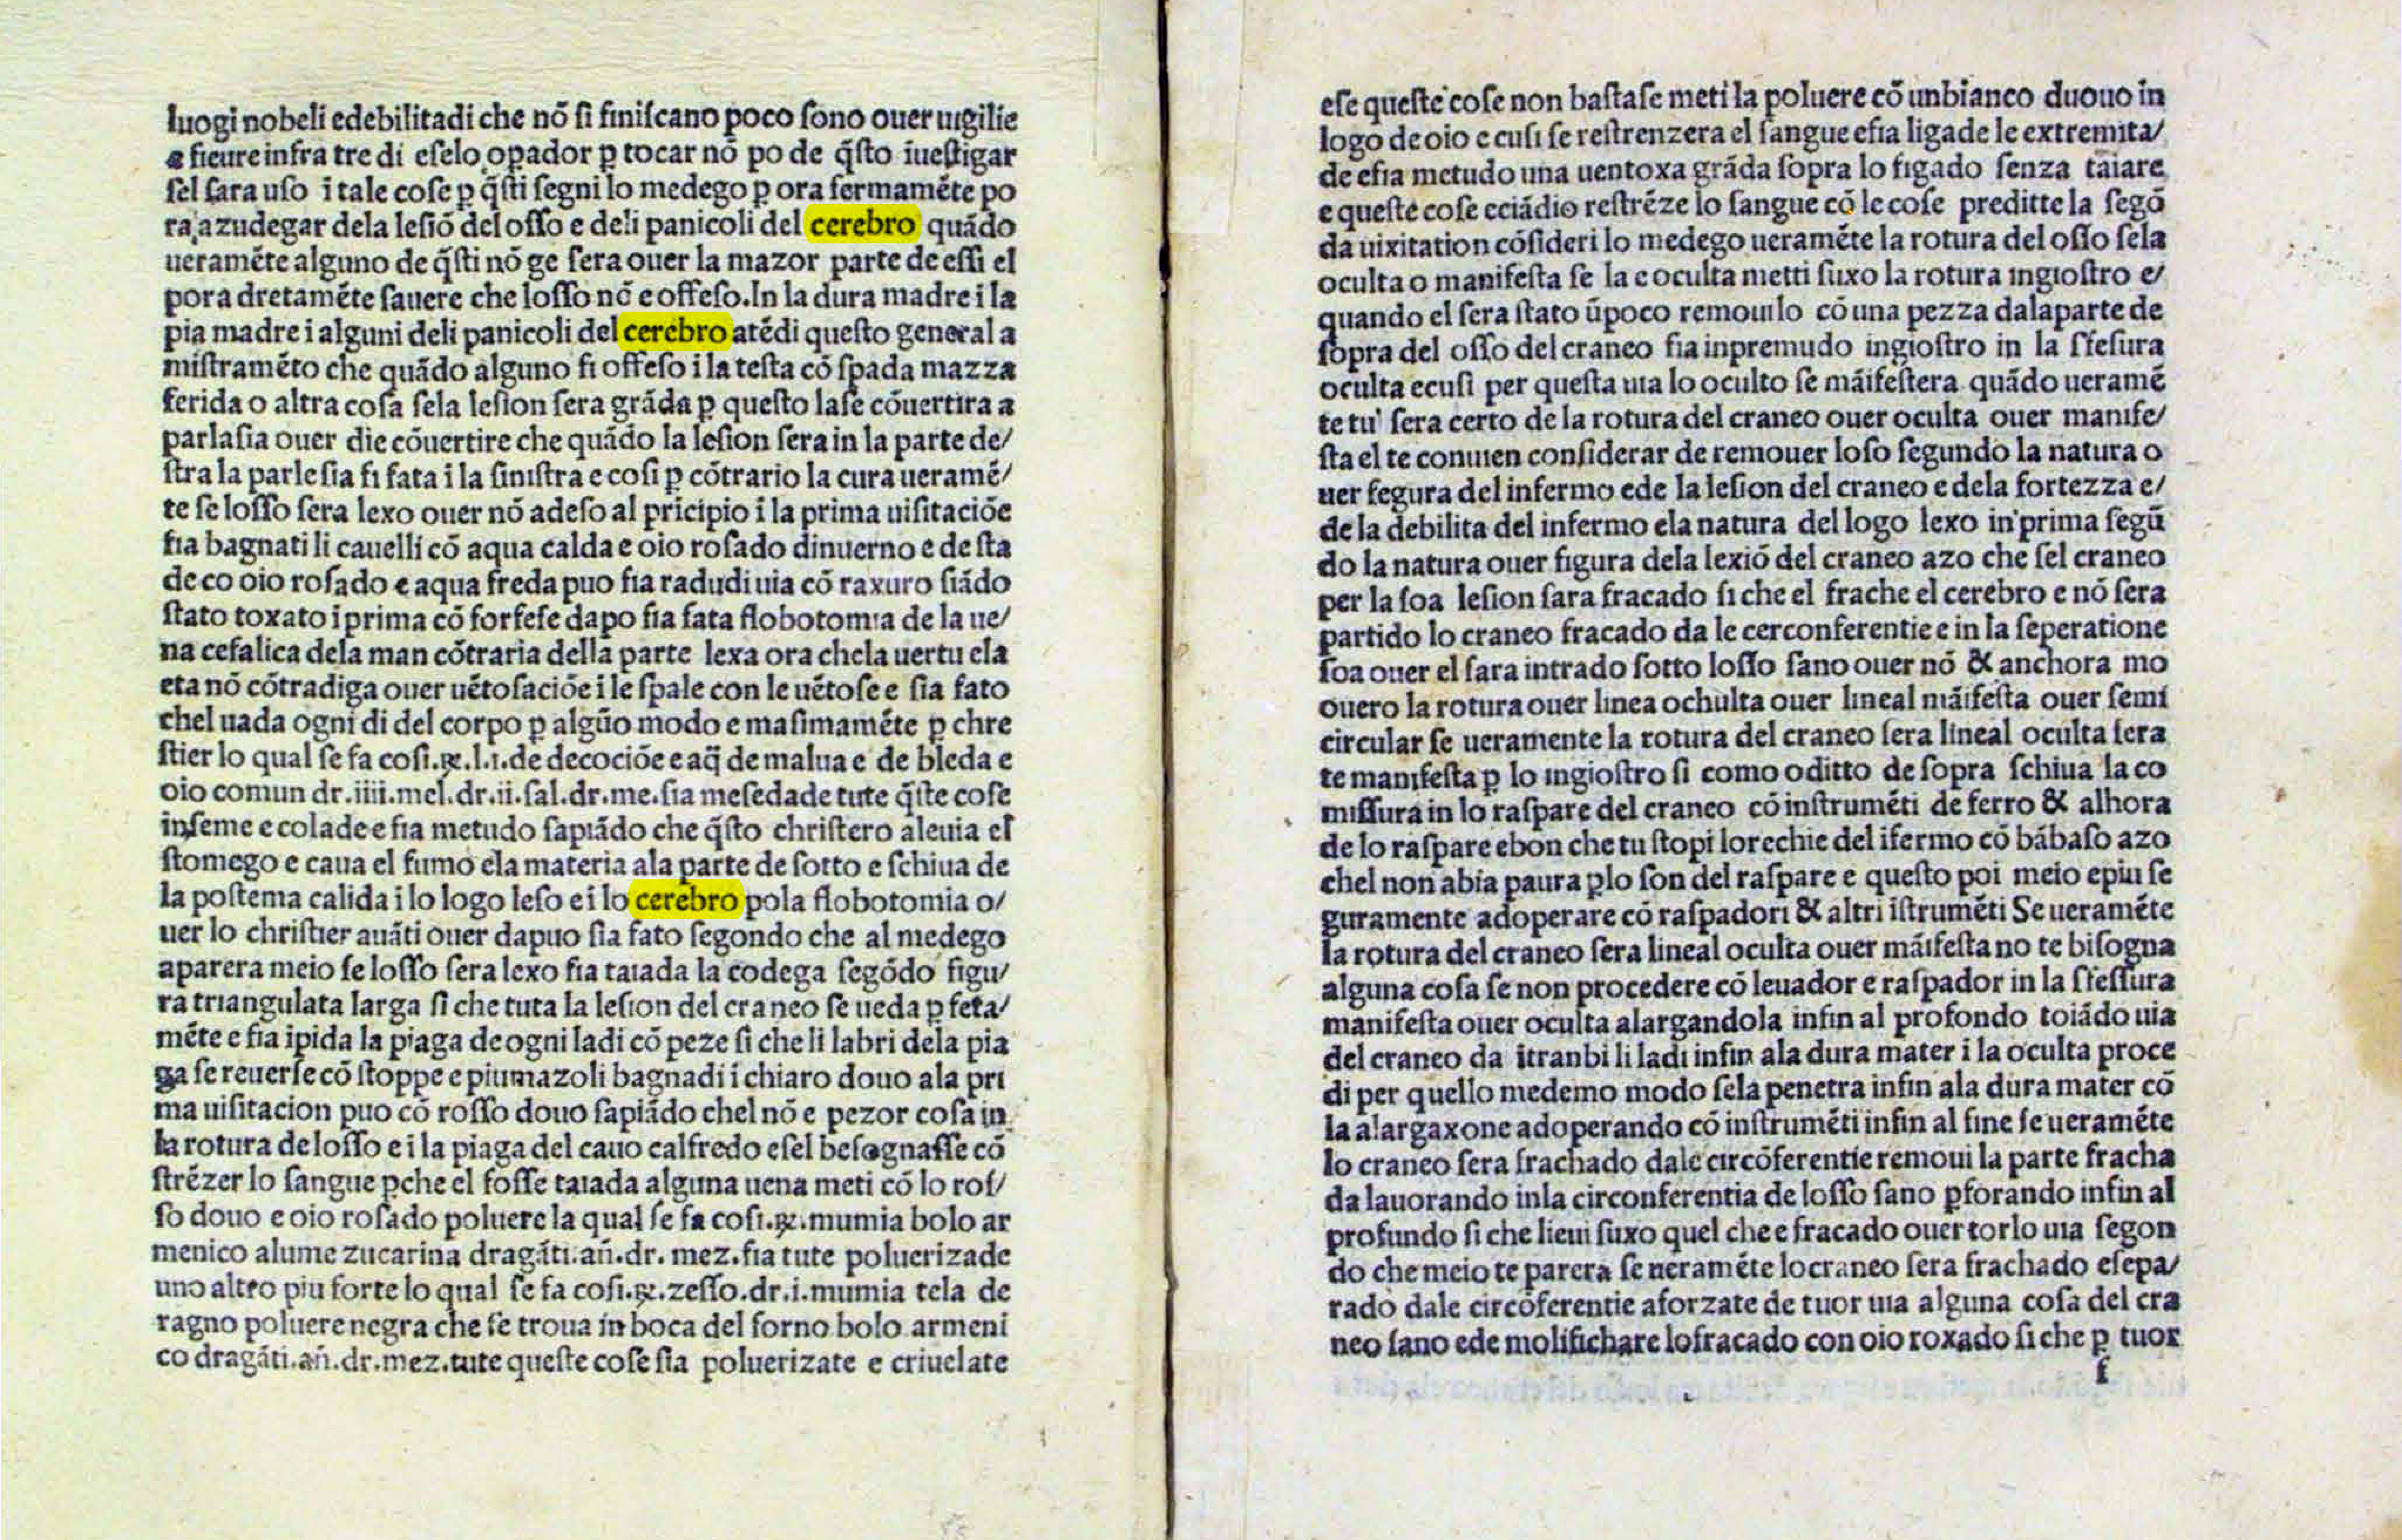 luogi nobeli edebilitadi che nō ſi finiſcano poco ſono ouer uigilie
e fieure infra tre di eſelo opador ꝑ tocar nō po de q̄ſto īueſtigar
ſel ſara uſo ī tale coſe ꝑ q̄ſti ſegni lo medego ꝑ ora fermamēte po
ra azudegar dela leſiō del oſſo e deli panicoli del cerebro quādo
ueramēte alguno de q̄ſti nō ge ſera ouer la mazor parte de eſſi el
pora dretamēte ſauere che loſſo nō e offeſo.In la dura madre i la
pia madre i alguni deli panicoli del cerebro atēdi queſto general a
miſtramēto che quādo alguno fi offeſo i la teſta cō ſpada mazza
ferida o altra coſa ſela leſion ſera grāda ꝑ queſto laſe cōuertira a
parlaſia ouer die cōuertire che quādo la leſion ſera in la parte de/
ſtra la parleſia fi fata i la ſiniſtra e coſi ꝑ cōtrario la cura ueramē/
te ſe loſſo ſera lexo ouer nō adeſo al pricipio ī la prima uiſitaciōe
fia bagnati li cauelli cō aqua calda e oio roſado dinuerno e de ſta
de co oio roſado e aqua freda puo fia radudi uia cō raxuro ſiādo
ſtato toxato ī prima cō forfeſe dapo fia fata flobotomia de la ue/
na cefalica dela man cōtraria della parte lexa ora chela uertu ela
eta nō cōtradiga ouer uētoſaciōe i le ſpale con le uētoſe e ſia fato
chel uada ogni di del corpo ꝑ algūo modo e maſimamēte ꝑ chre
ſtier lo qual ſe fa coſi.℞.l.i.de decociōe e aq̄ de malua e de bleda e
oio comun dr.iiii.mel.dr.ii.ſal.dr.me.ſia meſedade tute q̄ſte coſe
inſeme e colade e fia metudo ſapiādo che q̄ſto chriſtero aleuia el
ſtomego e caua el fumo ela materia ala parte de ſotto e ſchiua de
la poſtema calida i lo logo leſo e i lo cerebro pola flobotomia o/
uer lo chriſtier auāti ouer dapuo ſia fato ſegondo che al medego
aparera meio ſe loſſo ſera lexo fia taiada la codega ſegōdo figu/
ra triangulata larga ſi che tuta la leſion del craneo ſe ueda ꝑ feta/
mēte e fia ipida la piaga de ogni ladi cō peze ſi che li labri dela pia
ga ſe reuerſe cō ſtoppe e piumazoli bagnadi ī chiaro douo ala pri
ma uiſitacion puo cō roſſo douo ſapiādo chel nō e pezor coſa in
la rotura de loſſo e i la piaga del cauo calfredo eſel beſognaſſe cō
ſtrēzer lo ſangue ꝑche el foſſe taiada alguna uena meti cō lo roſ/
ſo douo e oio roſado poluere la qual ſe fa coſi.℞.mumia bolo ar
menico alume zucarina dragāti.an̄.dr. mez.fia tute poluerizade
uno altro piu forte lo qual ſe fa coſi.℞.zeſſo.dr.i.mumia tela de
ragno poluere negra che ſe troua in boca del forno bolo armeni
co dragāti.an̄.dr.mez.tute queſte coſe ſia poluerizate e criuelate
eſe queſte coſe non baſtaſe meti la poluere cō unbianco duouo in
logo de oio e cuſi ſe reſtrenzera el ſangue efia ligade le extremita/
de efia metudo una uentoxa grāda ſopra lo figado ſenza taiare
e queſte coſe eciādio reſtrēze lo ſangue cō le coſe preditte la ſegō
da uixitation cōſideri lo medego ueramēte la rotura del oſſo ſela
oculta o manifeſta ſe la e oculta metti ſuxo la rotura ingioſtro e/
quando el ſera ſtato ūpoco remouilo cō una pezza dalaparte de
ſopra del oſſo del craneo fia inpremudo ingioſtro in la ſfeſura
oculta ecuſi per queſta uia lo oculto ſe māifeſtera quādo ueramē
te tu ſera certo de la rotura del craneo ouer oculta ouer manife/
ſta el te conuien conſiderar de remouer loſo ſegundo la natura o
uer fegura del infermo ede la leſion del craneo e dela fortezza e/
de la debilita del infermo ela natura del logo lexo in prima ſegū
do la natura ouer figura dela lexiō del craneo azo che ſel craneo
per la ſoa leſion ſara fracado ſi che el frache el cerebro e nō ſera
partido lo craneo fracado da le cerconferentie e in la ſeperatione
ſoa ouer el ſara intrado ſotto loſſo ſano ouer nō & anchora mo
ouero la rotura ouer linea ochulta ouer lineal māifeſta ouer ſemi
circular ſe ueramente la rotura del craneo ſera lineal oculta ſera
te manifeſta ꝑ lo ingioſtro ſi como oditto de ſopra ſchiua la co
miſſura in lo raſpare del craneo cō inſtrumēti de ferro & alhora
de lo raſpare ebon che tu ſtopi lorechie del ifermo cō bābaſo azo
chel non abia paura ꝑlo ſon del raſpare e queſto poi meio epiu ſe
guramente adoperare cō raſpadori & altri iſtrumēti Se ueramēte
la rotura del craneo ſera lineal oculta ouer māifeſta no te biſogna
alguna coſa ſe non procedere cō leuador e raſpador in la ſfeſſura
manifeſta ouer oculta alargandola infin al profondo toiādo uia
del craneo da itranbi li ladi infin ala dura mater i la oculta proce
di per quello medemo modo ſela penetra infin ala dura mater cō
la alargaxone adoperando cō inſtrumēti infin al fine ſe ueramēte
lo craneo ſera frachado dale circōferentie remoui la parte fracha
da lauorando inla circonferentia de loſſo ſano ꝑforando infin al
profundo ſi che lieui ſuxo quel che e fracado ouer torlo uia ſegon
do che meio te parera ſe ueramēte lo craneo ſera frachado eſepa/
rado dale circōferentie aforzate de tuor uia alguna coſa del cra
neo ſano ede molifichare lofracado con oio roxado ſi che ꝑ tuor
f